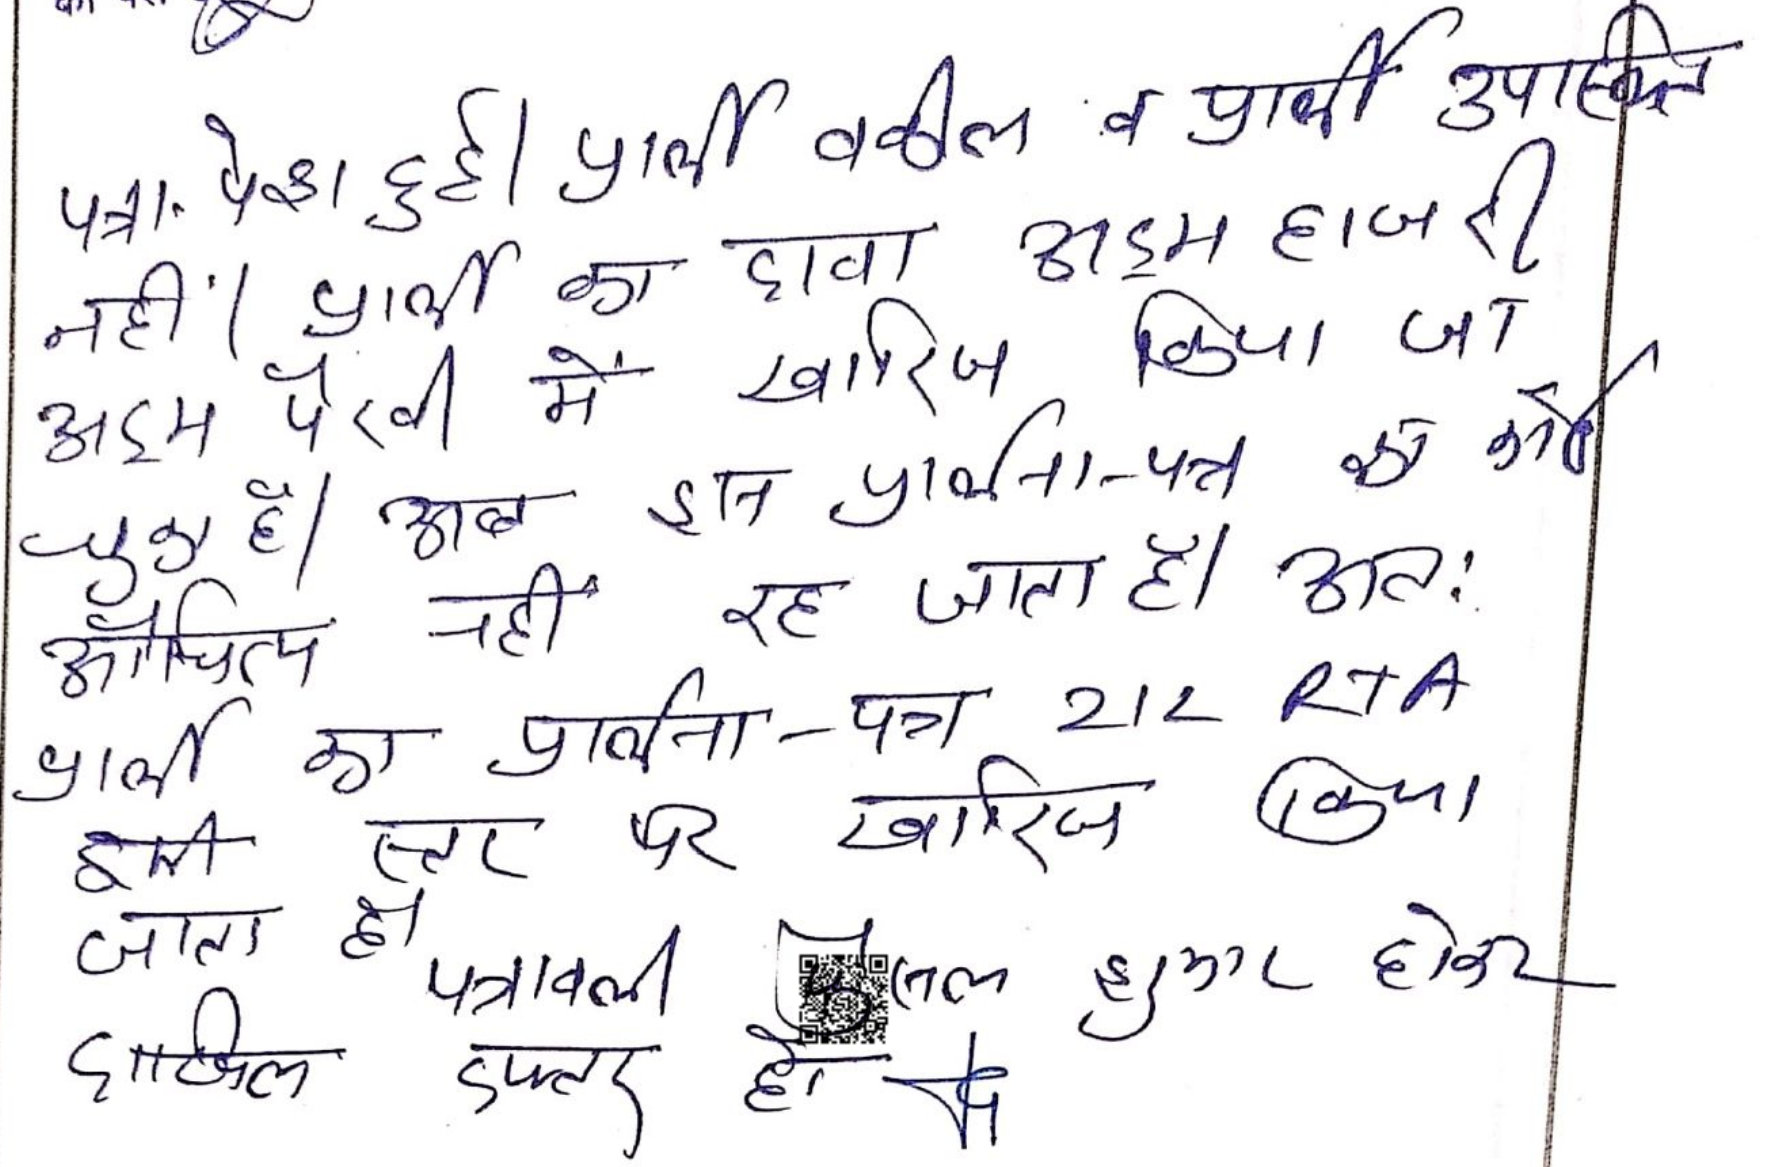 पत्रा. पेश हुई। प्रार्थी वकील व प्रार्थी उपस्थित
नहीं। प्रार्थी का दावा अदम हाजरी
अदम पैरवी में खारिज किया जा
चुका है। अब इस प्रार्थना-पत्र का कोई
औचित्य नहीं रह जाता है। अतः
प्रार्थी का प्रार्थना-पत्र 212 RTA
इसी स्तर पर खारिज किया
जाता है।
पत्रावली फैसल शुमार होकर
दाखिल दफ्तर हो